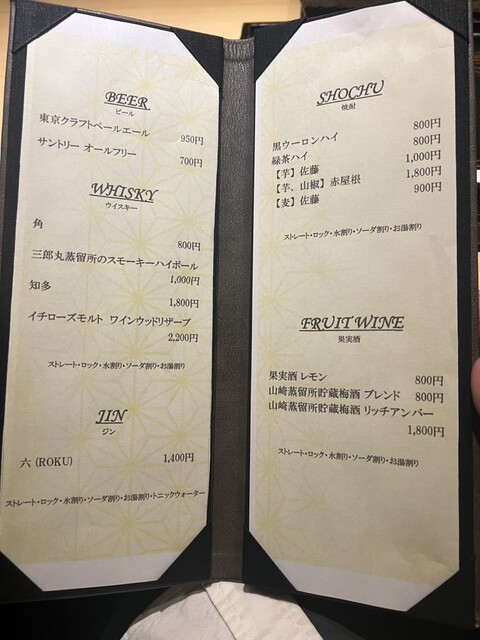 BEER
ビール
東京クラフトペールエール 950円
サントリー オールフリー 700円
WHISKY
ウイスキー
角
800円
三郎丸蒸留所のスモーキーハイボール
1,000円
知多
1,800円
イチローズモルト ワインウッドリザーブ
2,200円
ストレート・ロック・水割り・ソーダ割り・お湯割り
JIN
ジン
六 (ROKU) 1,400円
ストレート・ロック・水割り・ソーダ割り・お湯割り・トニックウォーター
SHOCHU
焼酎
黒ウーロンハイ 800円
緑茶ハイ 800円
【芋】佐藤 1,000円
【芋、山椒】赤屋根 1,800円
【麦】佐藤 900円
ストレート・ロック・水割り・ソーダ割り・お湯割り
FRUIT WINE
果実酒
果実酒 レモン 800円
山崎蒸留所貯蔵梅酒 ブレンド 800円
山崎蒸留所貯蔵梅酒 リッチアンバー
1,800円
ストレート・ロック・水割り・ソーダ割り・お湯割り